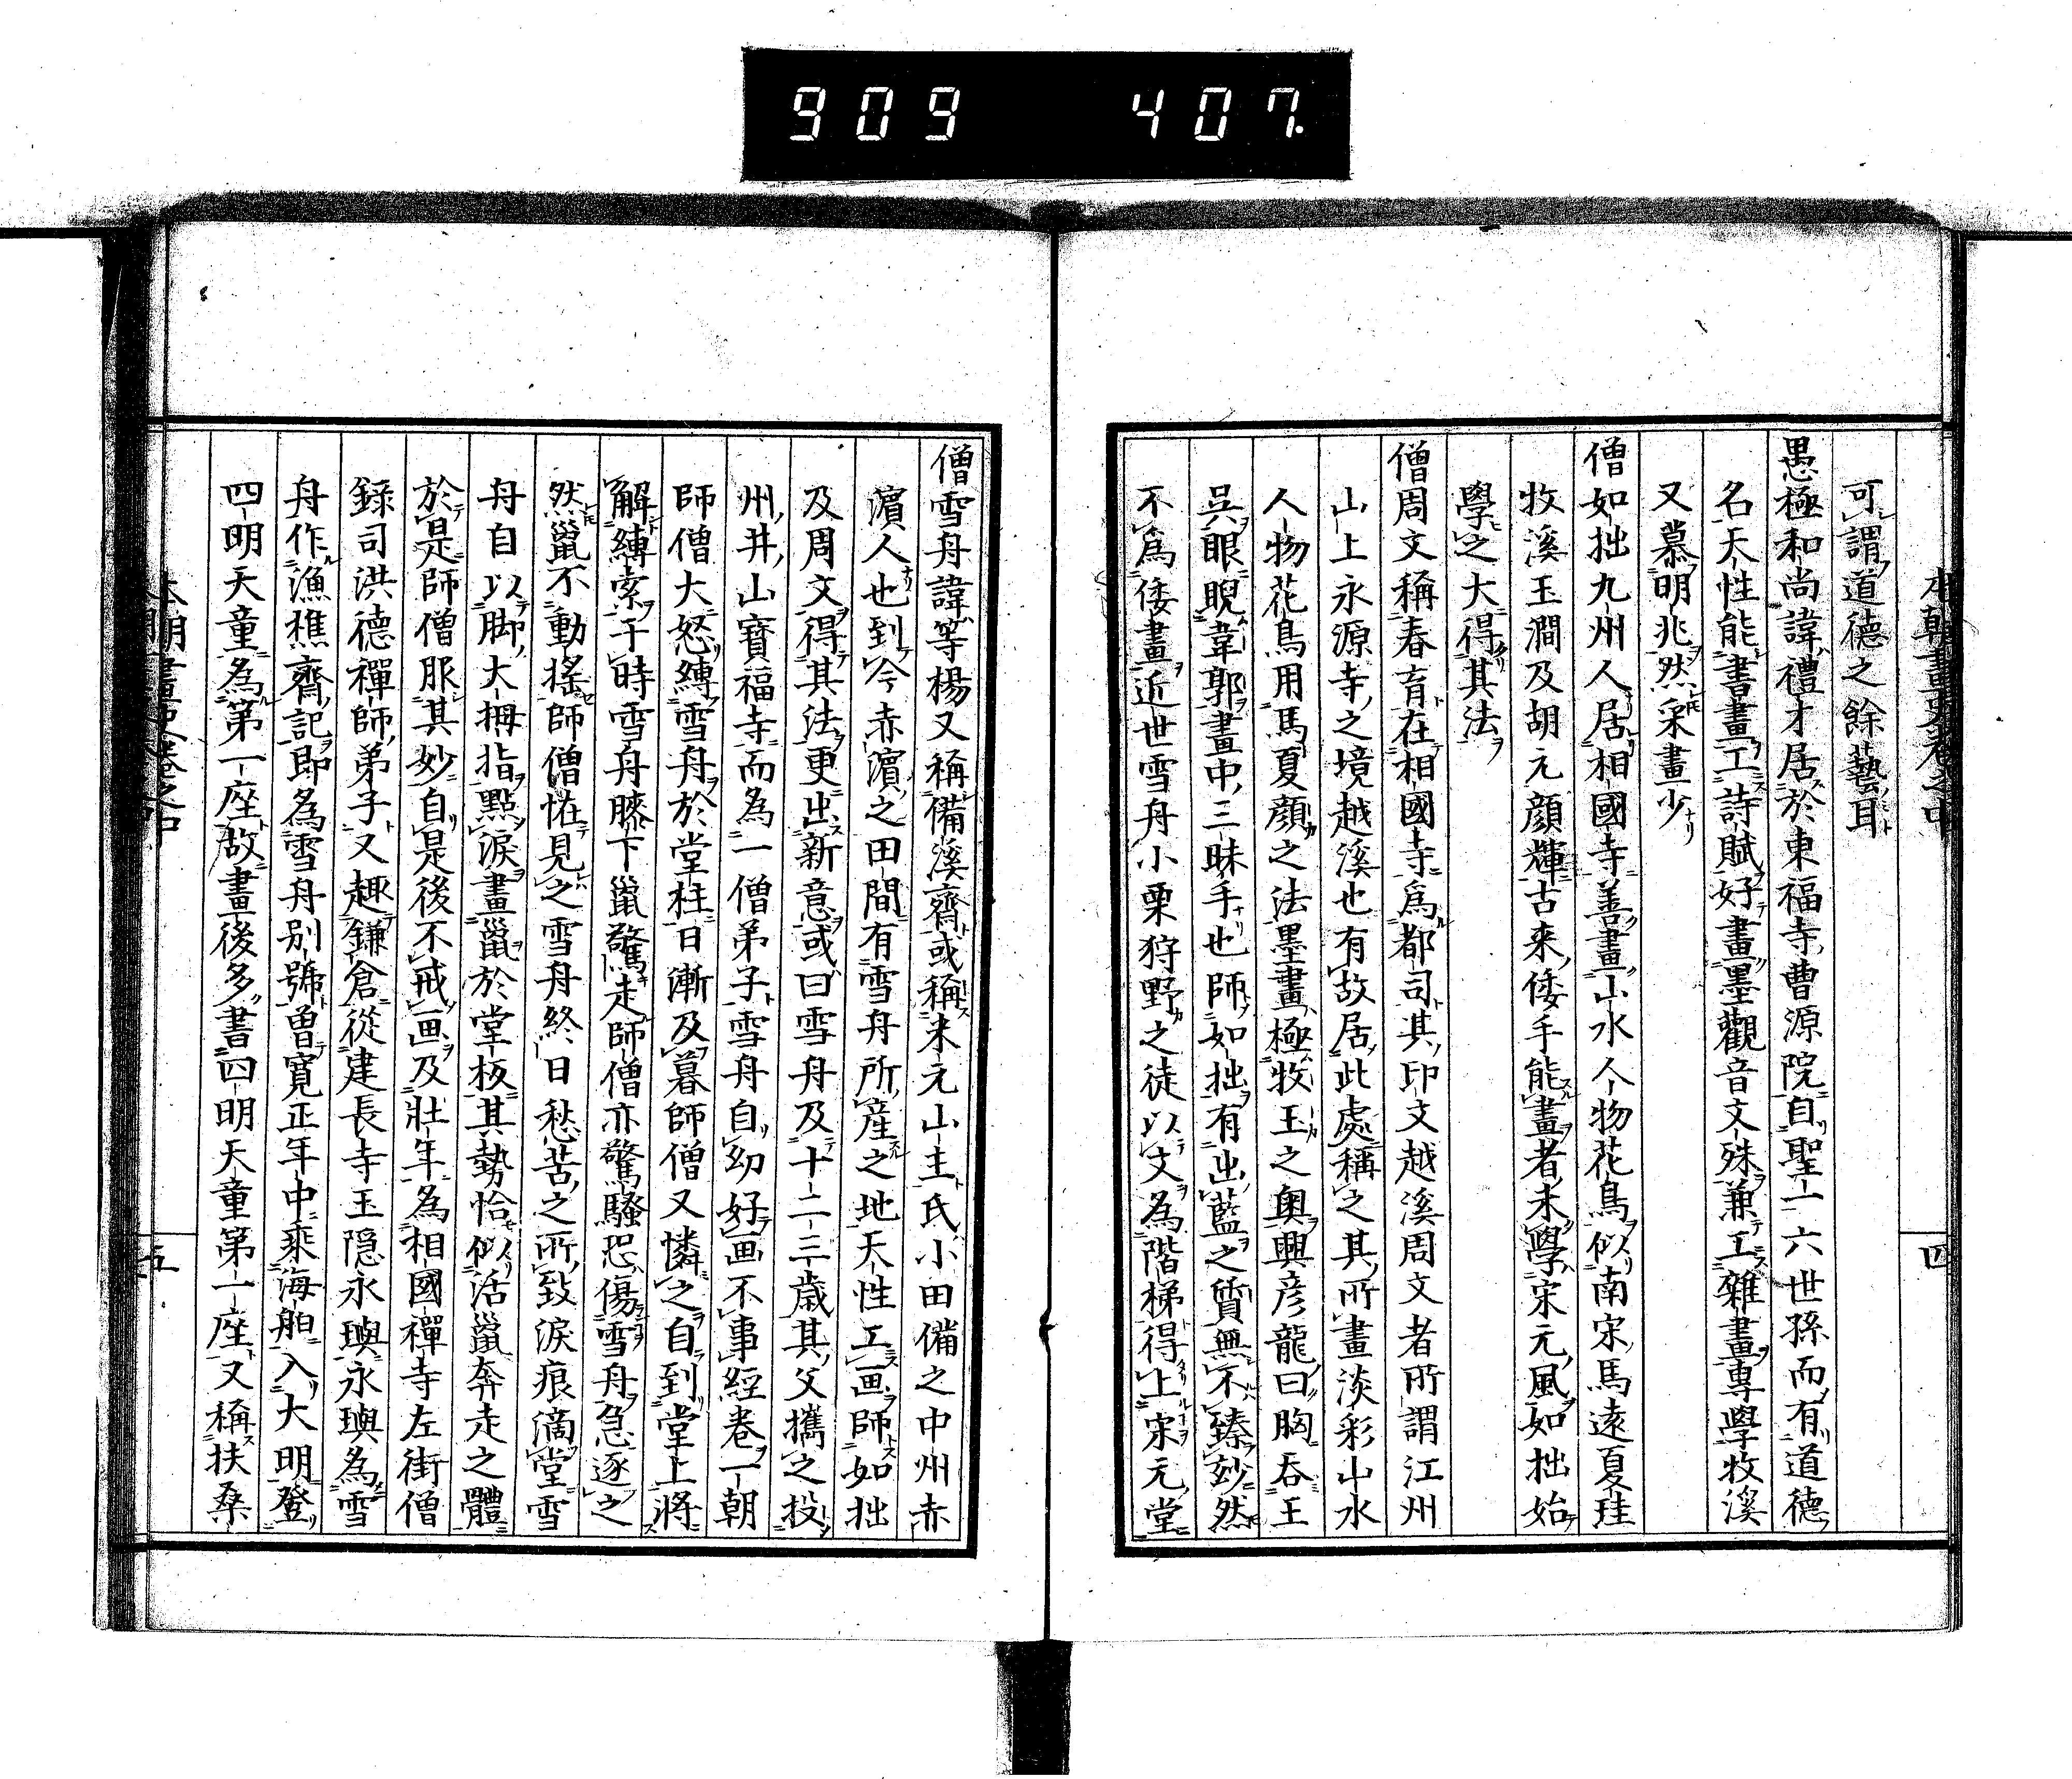 909 407.
本朝畫史卷之中 四
可謂道德之餘藝耳
愚極和尚諱禮才居於東福寺曹源院自聖一六世孫而有道德
名天性能書畫工詩賦好畫墨觀音文殊兼工雜畫專學牧溪
又慕明兆然采畫少
僧如拙九州人居相國寺善畫山水人物花鳥似南宋馬遠夏珪
牧溪玉澗及胡元顔輝古來倭手能畫者未學宋元風如拙始
學之大得其法
僧周文稱春育在相國寺爲都司其印文越溪周文者所謂江州
山上永源寺之境越溪也有故居此處稱之其所畫淡彩山水
人物花鳥用馬夏顔之法墨畫極牧玉之奥興彦龍曰胸吞王
吳眼睨韋郭畫中三昧手也師如拙有出藍之質無不臻玅然
不爲倭畫近世雪舟小栗狩野之徒以文為階梯得上宋元堂
僧雪舟諱等楊又稱備溪齋或稱米元山主氏小田備之中州赤
濵人也到今赤濵之田間有雪舟所產之地天性工画師如拙
及周文得其法更出新意或曰雪舟及十二三歲其父攜之投
州井山寶福寺而為一僧弟子雪舟自幼好画不事經卷一朝
師僧大怒縛雪舟於堂柱日漸及暮師僧又憐之自到堂上將
解縛索于時雪舟膝下鼠驚走師僧亦驚騷恐傷雪舟急逐之
然鼠不動搖師僧恠見之雪舟終日愁苦之所致淚痕滴堂雪
舟自以脚大拇指點淚畫鼠於堂板其勢恰似活鼠奔走之體
於是師僧服其妙自是後不戒画及壯年為相國禪寺左街僧
錄司洪德禪師弟子又趣鎌倉從建長寺玉隠永璵永璵為雪
舟作漁樵齋記即為雪舟別號曽寬正年中乘海舶入大明登
四明天童為第一座故畫後多書四明天童第一座又稱扶桑
本朝畫史卷之中 五